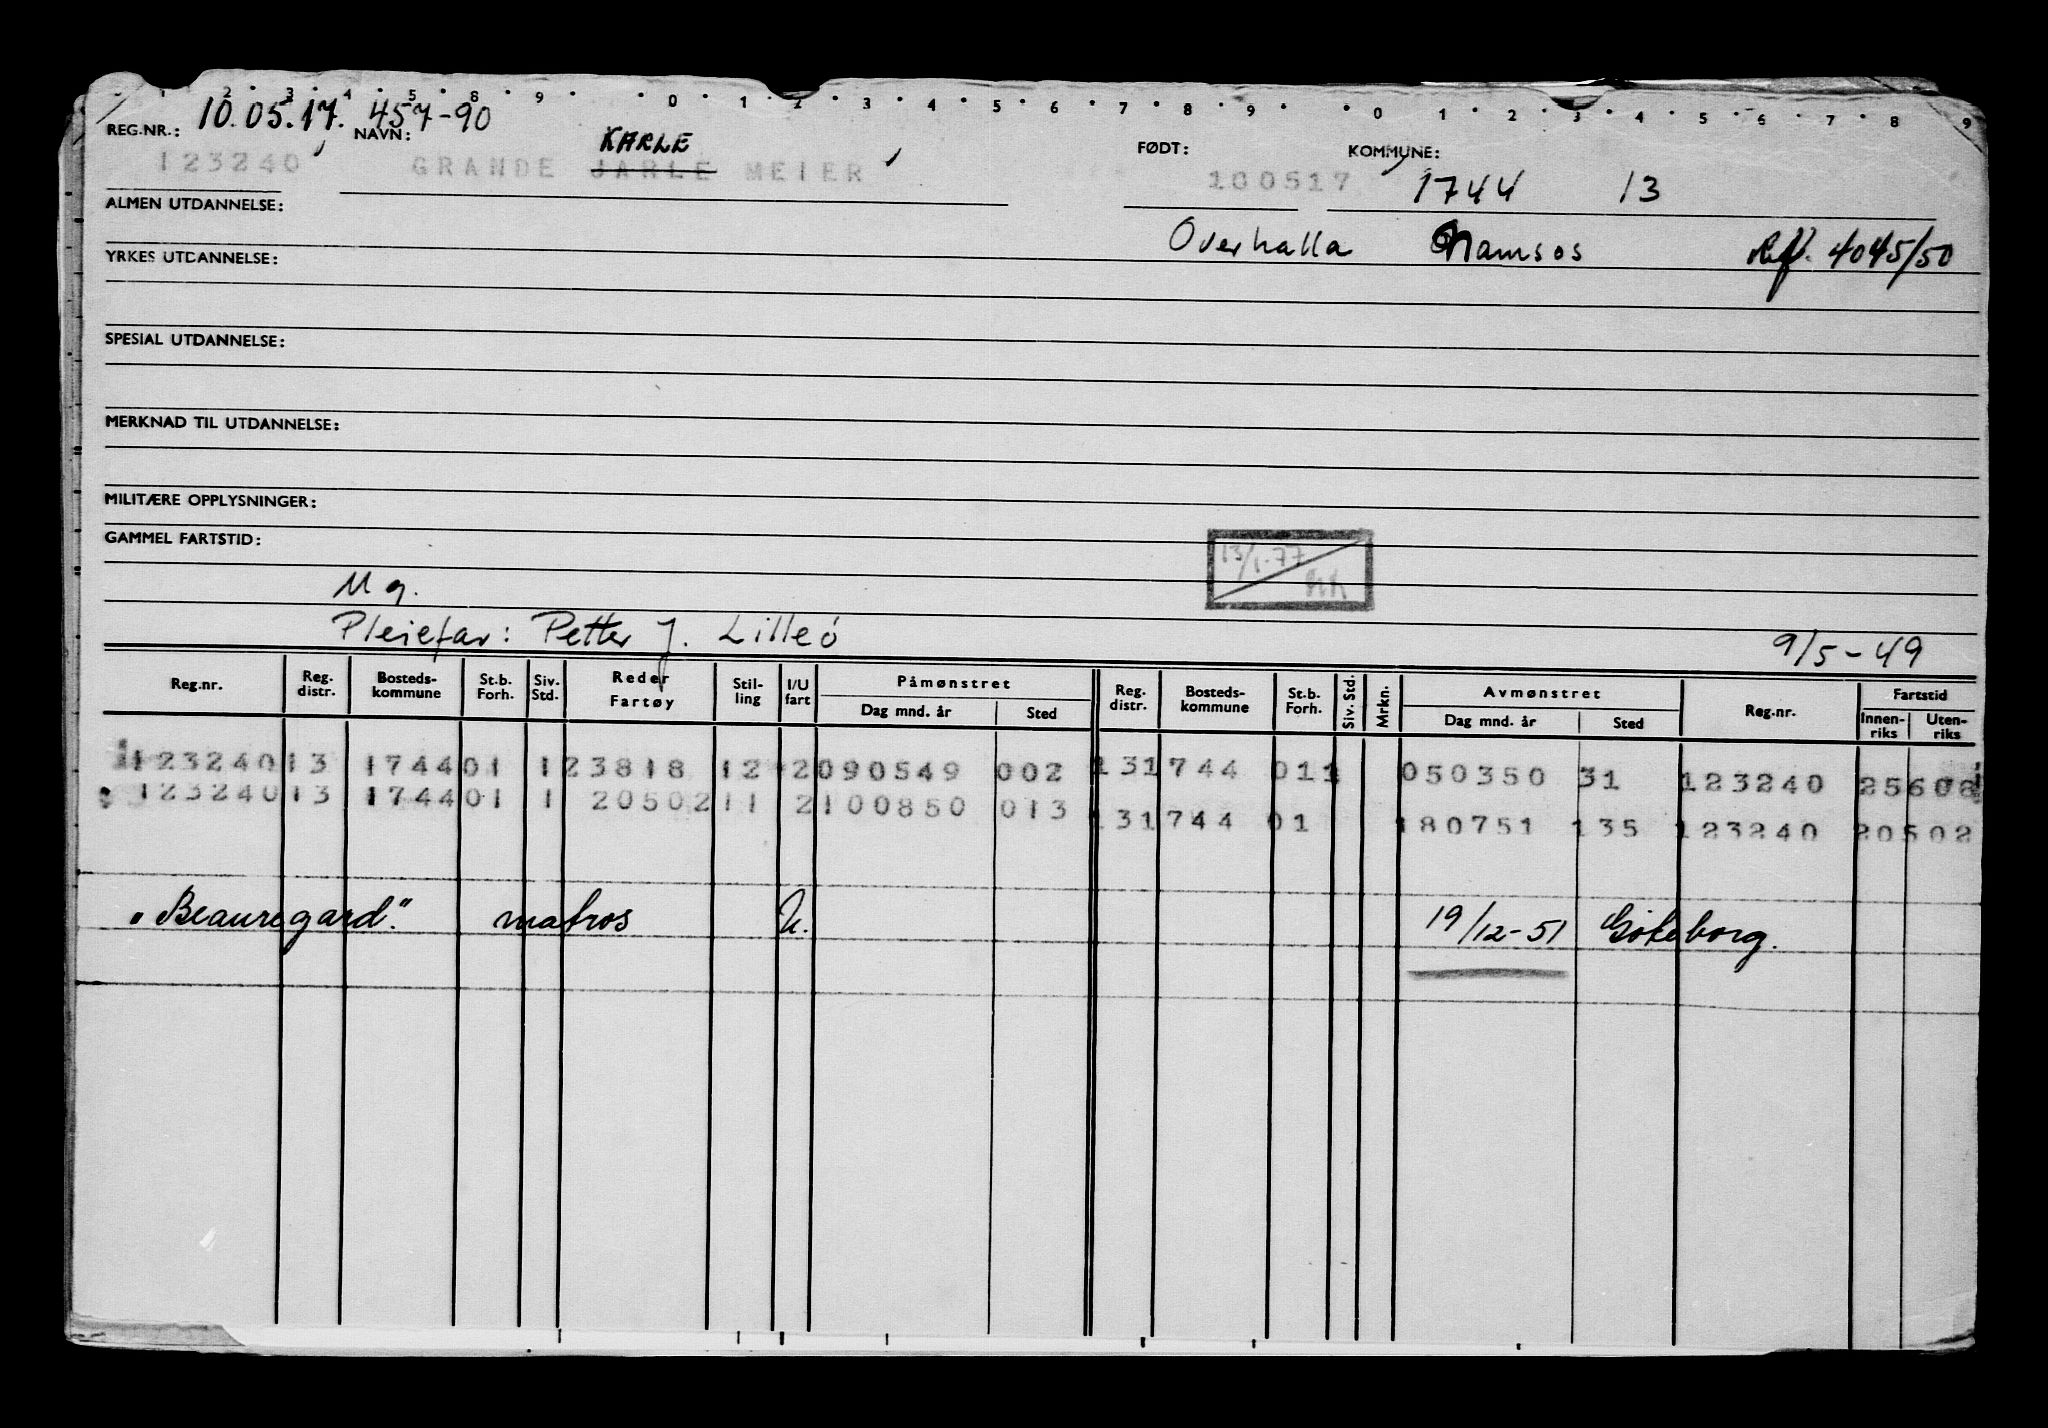 1 2 3 4 5 8 9 0 1 2 3 4 5 6 7 8 9 0 1 2 3 4 5 6 7 8 9
REG.NR.: 10.05.17. 457-90
NAVN: KARLE
FØDT: KOMMUNE:
123240 GRANDE JARLE MEIER 100517 1744 13
ALMEN UTDANNELSE:
Overhalla Namsos Ref. 4045/50
YRKES UTDANNELSE:
SPESIAL UTDANNELSE:
MERKNAD TIL UTDANNELSE:
MILITÆRE OPPLYSNINGER:
GAMMEL FARTSTID:
13/1-77
Ug.
Pleiefar: Petter J. Lilleö 9/5-49
Reg.nr. Reg. distr. Bosteds-kommune St.b. Forh. Siv. Std. Reder Fartøy Stil-ling I/U fart Påmønstret Dag mnd. år Sted Reg. distr. Bosteds-kommune St.b. Forh. Siv. Std. Mrkn. Avmønstret Dag mnd. år Sted Reg.nr. Fartstid Innen-riks Uten-riks
123240 13 1744 01 1 23818 12 2 090549 002 13 1744 01 1 050350 31 123240 25608
123240 13 1744 01 1 20502 11 2 100850 013 13 1744 01 180751 135 123240 20502
"Beauregard". matros U. 19/12-51 Göteborg.